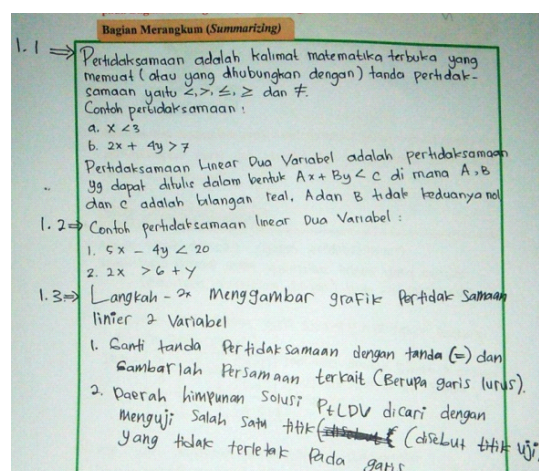 Bagian Merangkum (Summarizing)
1.1 ⇒ Pertidaksamaan adalah kalimat matematika terbuka yang
memuat (atau yang dihubungkan dengan) tanda pertidak-
samaan yaitu <, >, ≤, ≥ dan ≠.
Contoh pertidaksamaan :
a. x < 3
b. 2x + 4y > 7
Pertidaksamaan Linear Dua Variabel adalah pertidaksamaan
yg dapat ditulis dalam bentuk Ax + By < c di mana A, B
dan c adalah bilangan real, A dan B tidak keduanya nol
1.2 ⇒ Contoh pertidaksamaan linear Dua Variabel :
1. 5x - 4y < 20
2. 2x > 6 + y
1.3 ⇒ Langkah - 2x menggambar grafik Pertidak samaan
linier 2 Variabel
1. Ganti tanda Pertidaksamaan dengan tanda (=) dan
Gambarlah Persamaan terkait (Berupa garis lurus).
2. Daerah himpunan Solusi PtLDV dicari dengan
menguji Salah Satu titik (disebut titik uji
yang tidak terletak Pada garis